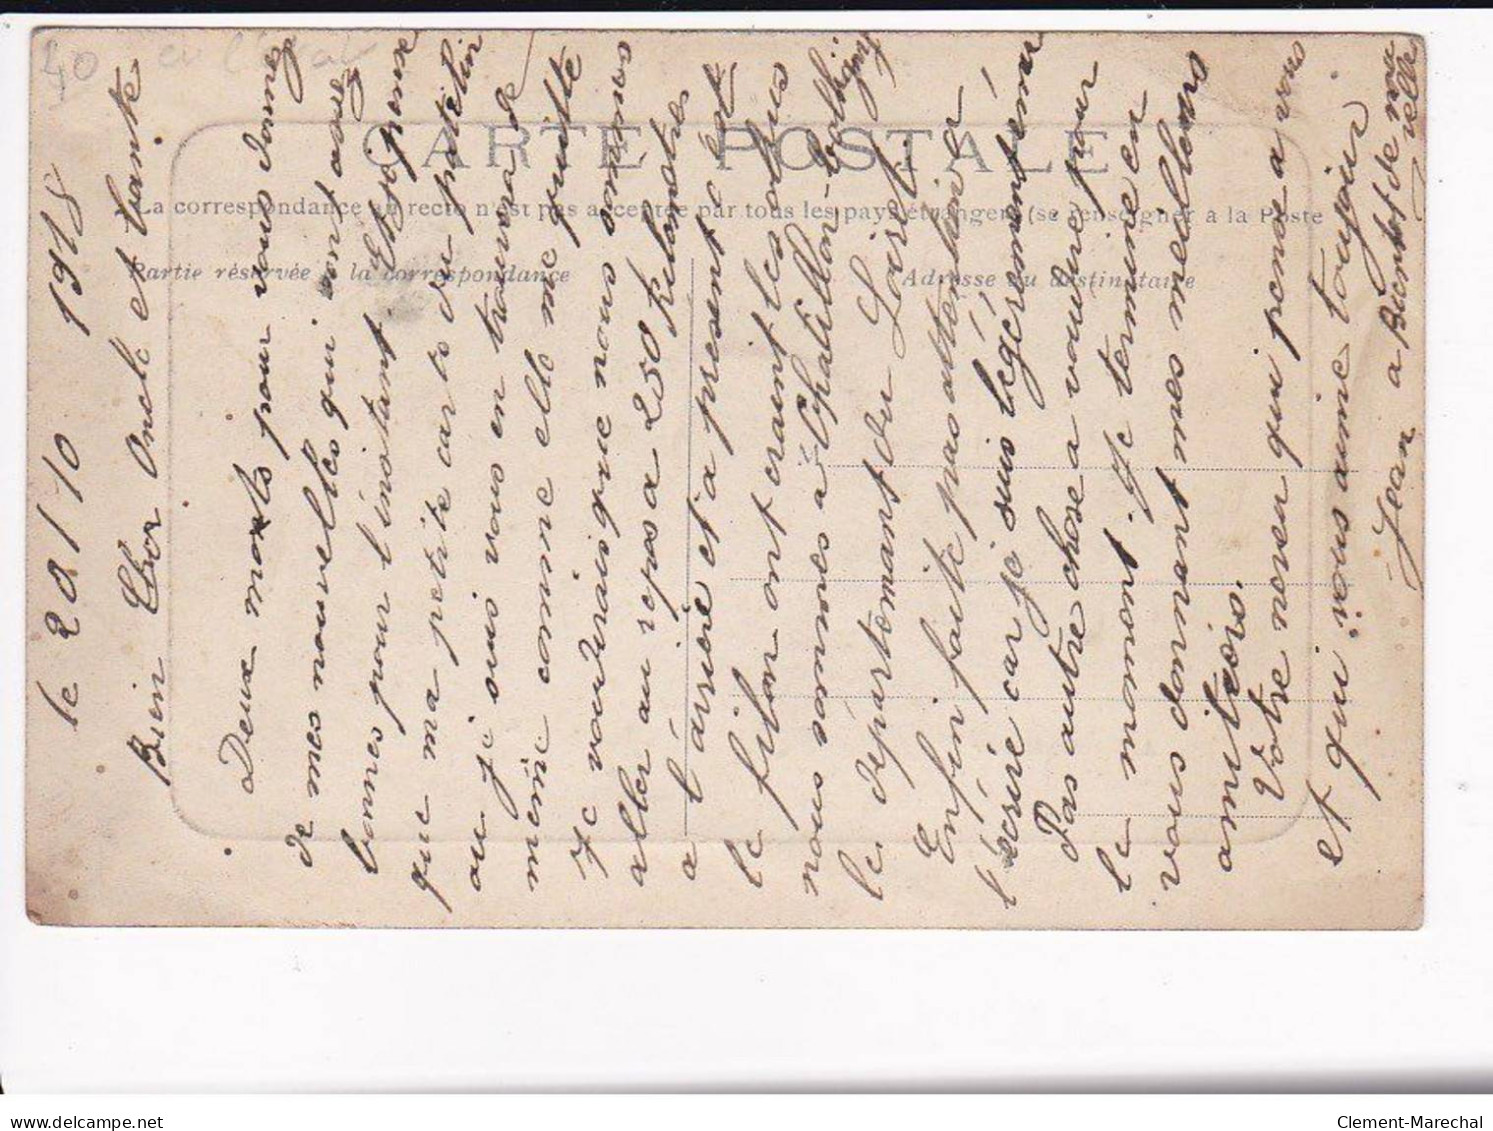 40
CARTE POSTALE
La correspondance au recto n'est pas acceptée par tous les pays étrangers (se renseigner à la Poste
Partie réservée à la correspondance
Adresse du destinataire
le 20/10 1918
Bien Cher Oncle et tante
Deux mots pour vous donnez
de mes nouvelles qui sont assez
bonnes pour l'instant et j'espense
que ma petite carte du patelin
ou je suis vous en trouvera de
meme comme elle me quitte
Je voudrais que nous sommes
aller au repos a 250 kilometres
a l'arriere et a present c'est
le filon ont craint les obus
nous sommes a Chatillon-Coligny
le département du Loiret
Enfin faite pas attention a
l'écrire car je suis légèrement ému
Pas autre chose a vous dire pour
le moment je termine en
vous donnant mes meilleurs
amitiers.
Votre neveu qui pense a vous
et qui vous aime toujour
Jean a Bientot de nou
velle
Clement-Marechal
delcampe.net